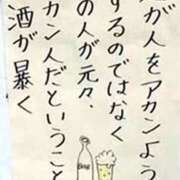 が人をアカンよう
するのではなく
の人が元々、
カン人だということ
酒が暴く